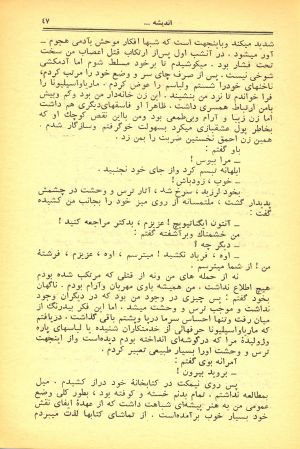 اندیشه ...
۴۷
شدید میکند وباینجهت است که شبها افکار موحش بآدمی هجوم ـ
آور میشود . در آنشب اول پس از ارتکاب قتل اعصاب من سخت
تحت فشار بود . میکوشیدم تا برخود مسلط شوم اما آدمکشی
شوخی نیست . پس از صرف چای سر و وضع خود را مرتب کردم،
ناخنهای خودرا شستم ولباسم را عوض کردم. ماریاواسیلیونا را
فرا خواندم تا نزد من بنشیند . این زن خانه‌دار من بود وکم وبیش
بامن ارتباط همسری داشت . ظاهرا او فاسقهای‌دیگری هم داشت
اما زن زیبا و آرام وبی‌طمعی بود ومن بااین نقص کوچک او که
بخاطر پول عشقبازی میکرد بسهولت خوگرفتم وسازگار شدم .
همین زن احمق نخستین ضربت را بمن زد .
باو گفتم :
ــ مرا ببوس !
ابلهانه تبسم کرد واز جای خود نجنبید .
ــ خوب ، زودباش!
بخود لرزید، سرخ شد ، آثار ترس و وحشت در چشمش
پدیدار گشت ، ملتمسانه از روی میز خود را بجانب من کشیده
گفت :
ــ آنتون ایگناتیویچ! عزیزم ، بدکتر مراجعه کنید !
من خشمناک وبرآشفته گفتم :
ــ دیگر چه !
ــ اوه ، فریاد نکشید! میترسم ، اوه ، عزیزم ، فرشتهٔ
من ! از شما میترسم .
نه از حمله های من ونه از قتلی که مرتکب شده بودم
هیچ اطلاع نداشت . من همیشه باوی مهربان وآرام بودم . ناگهان
بخود گفتم : پس چیزی در وجود من بود که در دیگران وجود
نداشت و موجب ترس و وحشت میشد . اما این فکر بیدرنگ از
میان رفت وتنها احساس سرما درپا وپشتم باقی گذاشت . دریافتم
که ماریاواسیلیونا حرفهائی از خدمتگاران شنیده یا لباسهای پاره
وژولیدهٔ مرا که درگوشه‌ای انداخته بودم دیده‌است واز اینجهت
ترس و وحشت اورا بسیار طبیعی تعبیر کردم .
آمرانه بوی گفتم :
ــ بروید بیرون !
پس روی نیمکت در کتابخانهٔ خود دراز کشیدم . میل
بمطالعه نداشتم . تمام بدنم خسته و کوفته بود ، بطور کلی وضع
عمومی من به هنر پیشه‌ای شباهت داشت که از عهدهٔ ایفای نقش
خود بسیار خوب برآمده‌است . از تماشای کتابها لذت میبردم